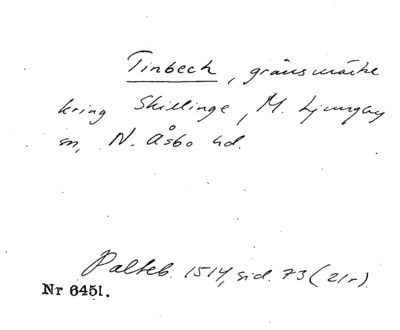 Tinbeck, gränsmärke
kring Skillinge, M. Ljungby
sn, N. Åsbo hd.
Palteb. 1514, sid. 73 (21r).
Nr 6451.